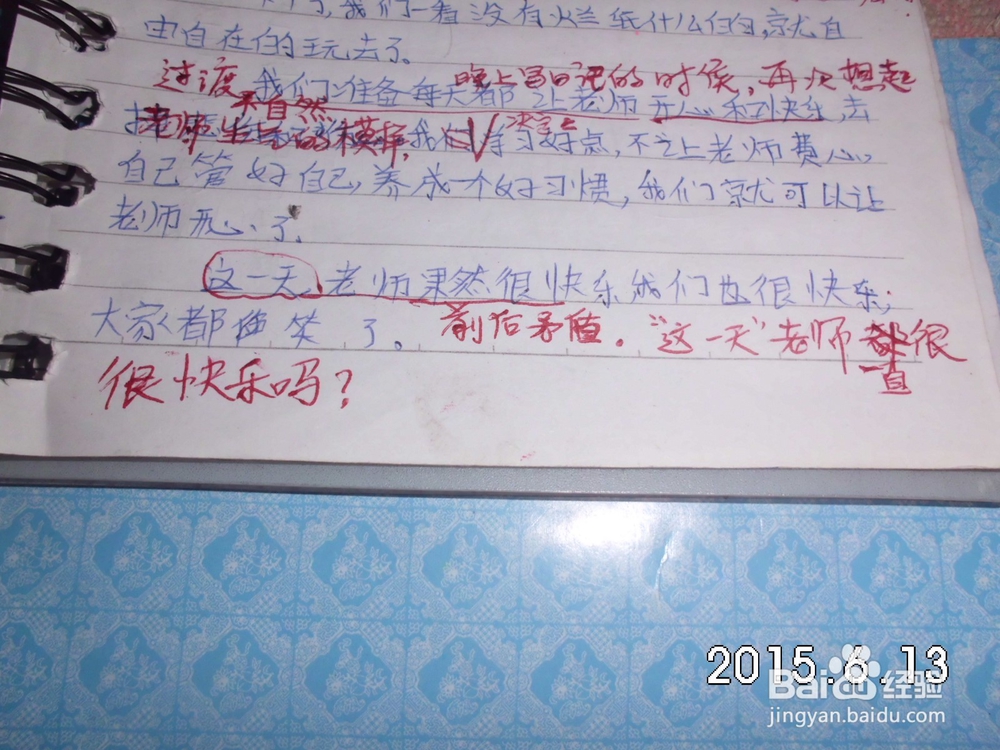 我们一看没有烂纸什么的,就自
由自在的玩去了。
过渡 晚上写日记的时候,再次想起
不自然
我们准备每天都让老师开心和快乐,去
老师生气的模样, 决定
我们学习好点,不让老师费心,
自己管好自己,养成一个好习惯,我们就可以让
老师开心了。
这一天,老师果然很快乐,我们也很快乐,
大家都 笑了。 前后矛盾。“这一天”老师 很
直
很快乐吗?
2015.6.13
Baidu经验
jingyan.baidu.com